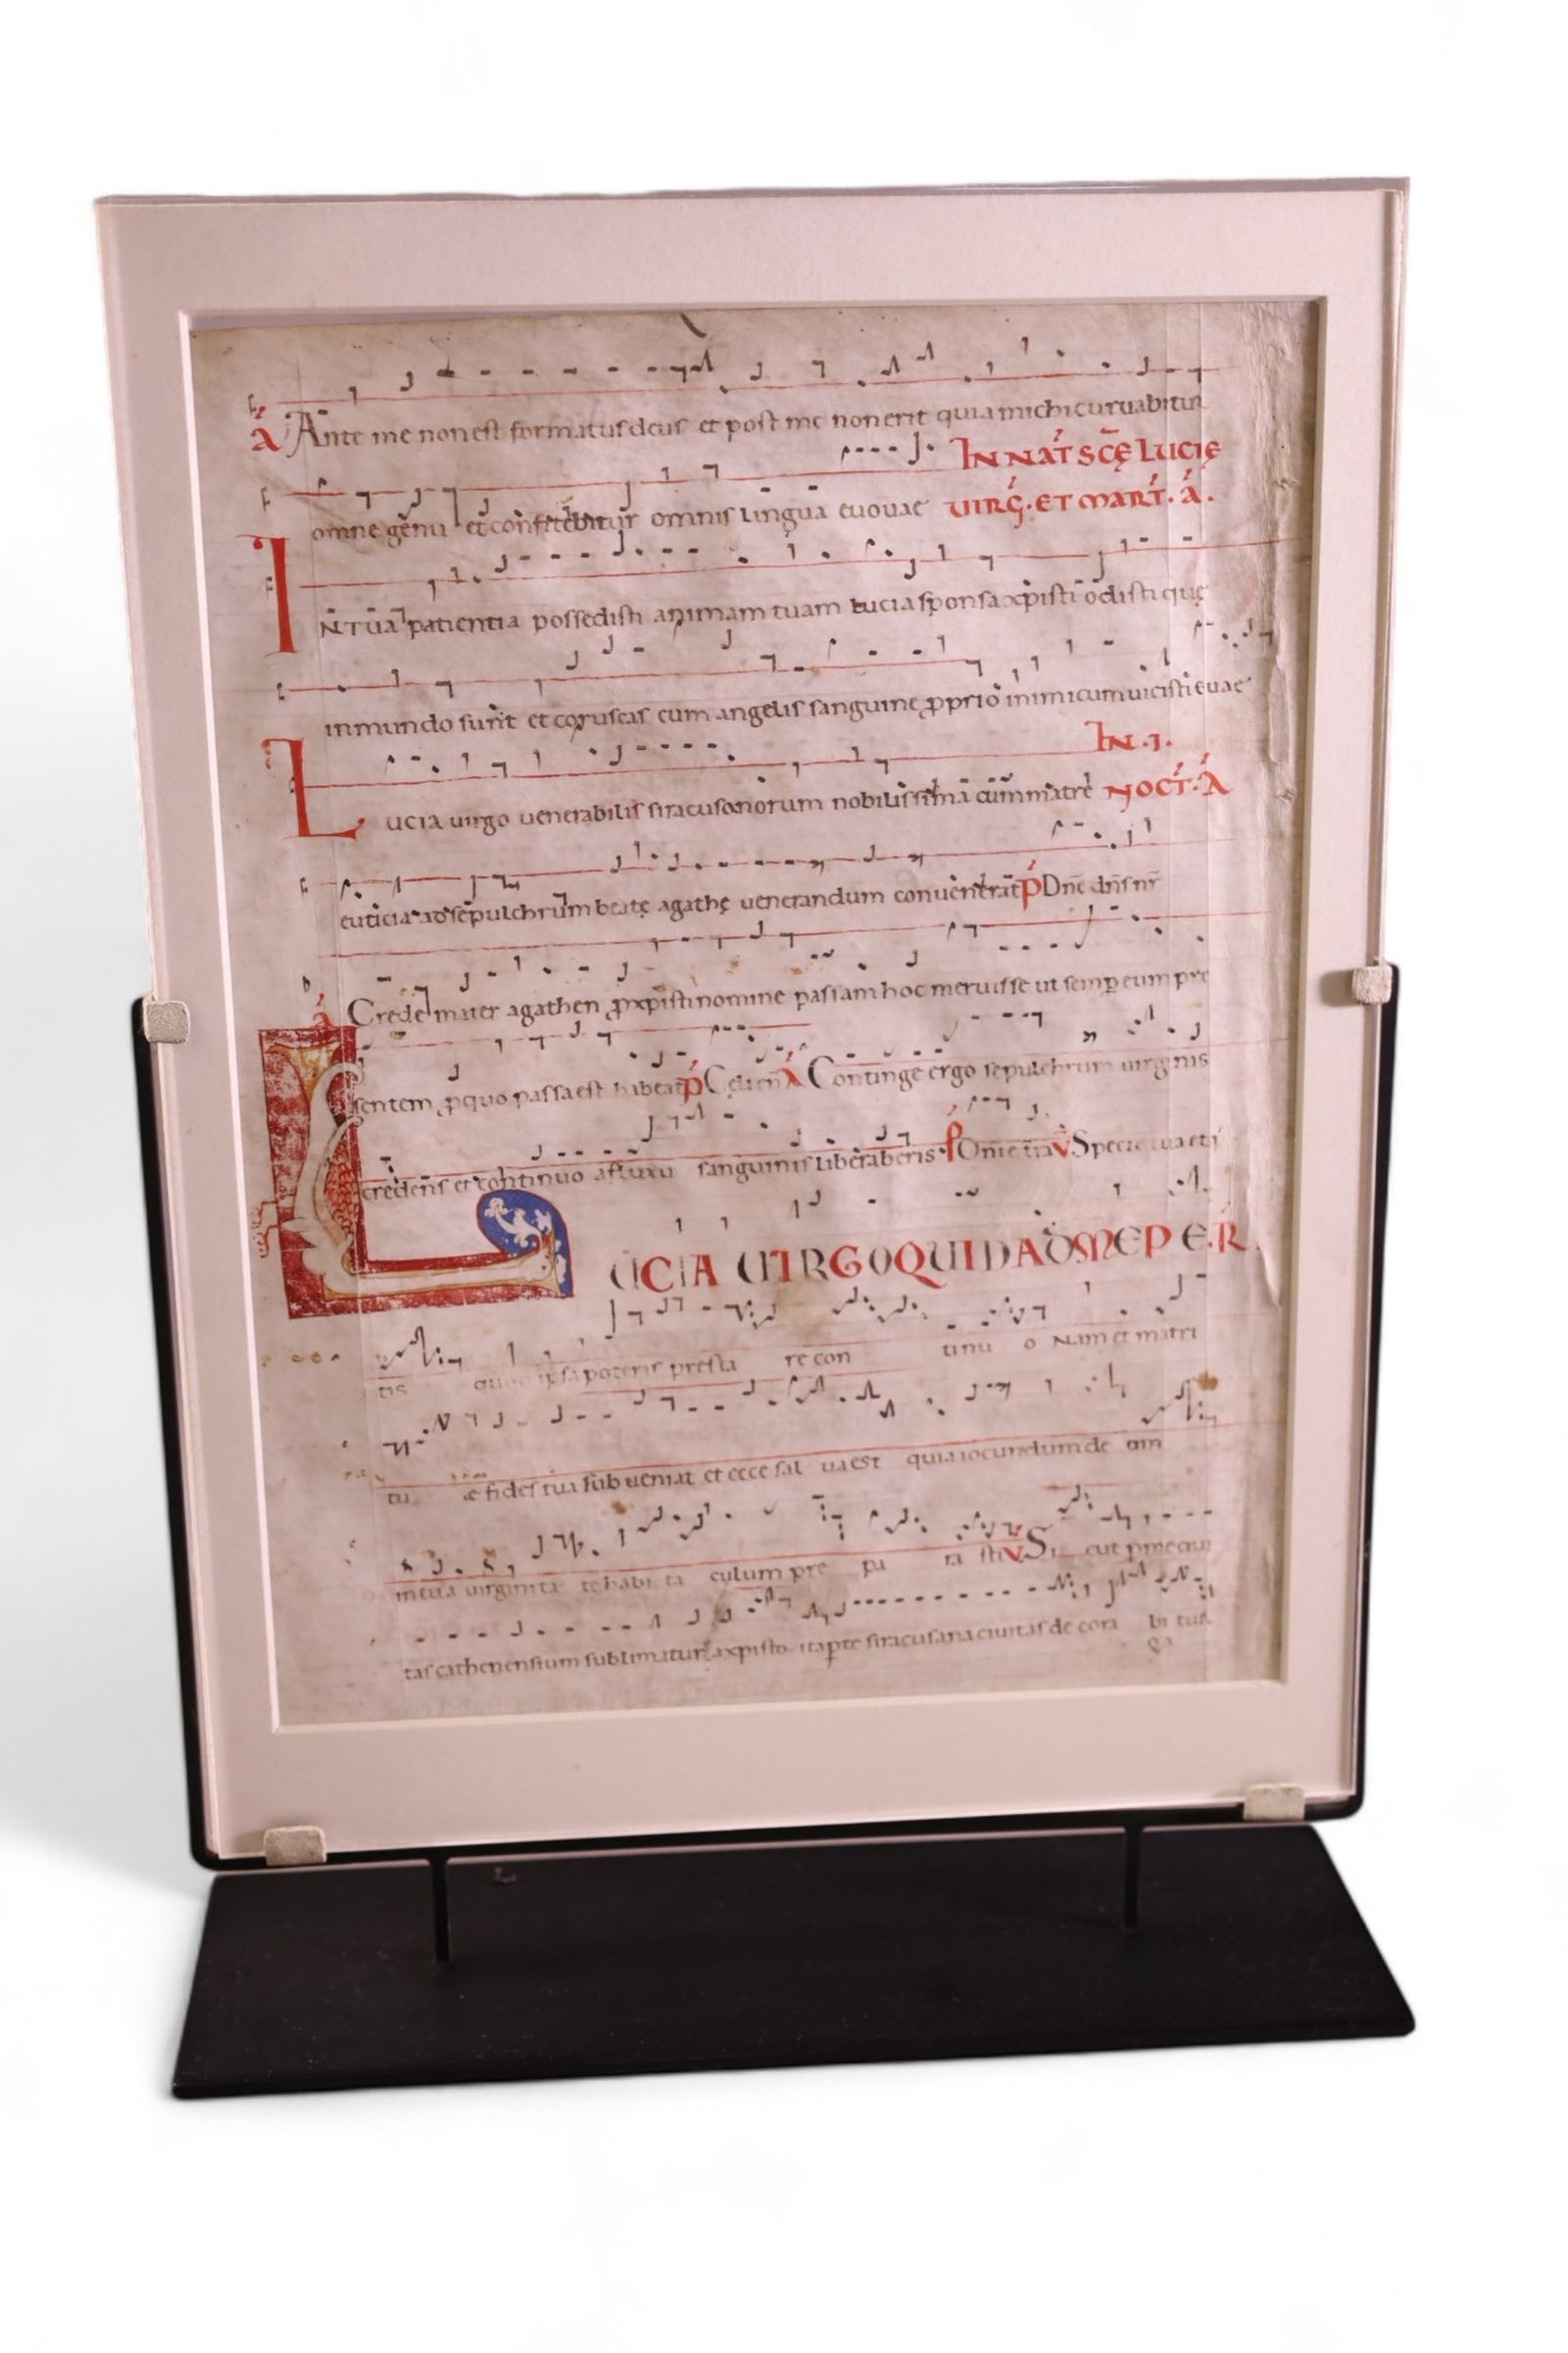 á Ante me non est formatus deus et post me non erit quia michi curvabitur
omne genu et confitebitur omnis lingua euouae IN NAT SCE LUCIE
VIRG. ET MART. á.
IN TUA patientia possedisti animam tuam lucia sponsa xpisti odisti quę
in mundo sunt et coruscas cum angelis sanguine proprio inimicum vicisti evae
Lucia virgo venerabilis siracusanorum nobilissima cum matre IN .I. NOCT. A
euticia ad sepulchrum beatę agathę venerandum convenerat P Dnē dns nr
á Crede mater agathen p xpisti nomine passam hoc meruisse ut semp eum pre
sentem p quo passa est habeat P Celi en A Continge ergo sepulchrum virginis
credens et continuo a fluxu sanguinis liberaberis P Dnī ē tra V Specie tua et
LUCIA VIRGO QUID A ME PE R
tis quod ipsa poteris presta re con tinu o Nam et matri
tu ę fides tua sub veniat et ecce sal va est quia iocundum de om
in tua virginita te habi ta culum pre pa ra sti V Si cut p me civi
tas cathenensium sublimatur a xpisto ita p te siracusana civitas decora bi tur